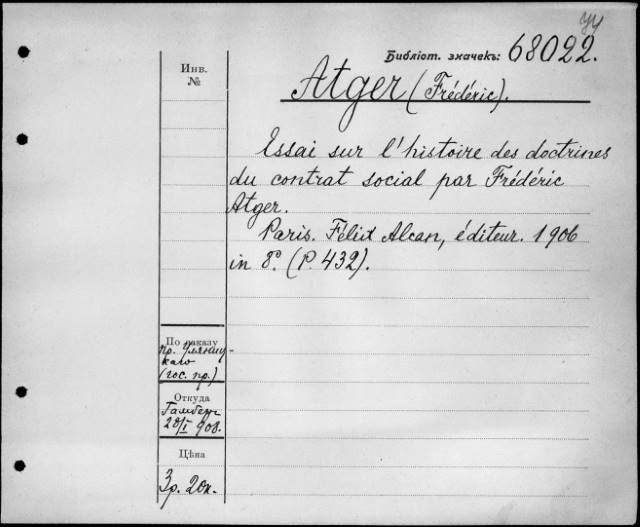 УУ
Библіот. значекъ: 68022.
Инв.
№
Atger (Frédéric).
Essai sur l'histoire des doctrines
du contrat social par Frédéric
Atger.
Paris. Félix Alcan, éditeur. 1906
in 8º. (P. 432).
По заказу
пр. Уляниц-
каго
(гос. пр.)
Откуда
28/I 908.
Цѣна
3р. 20к.